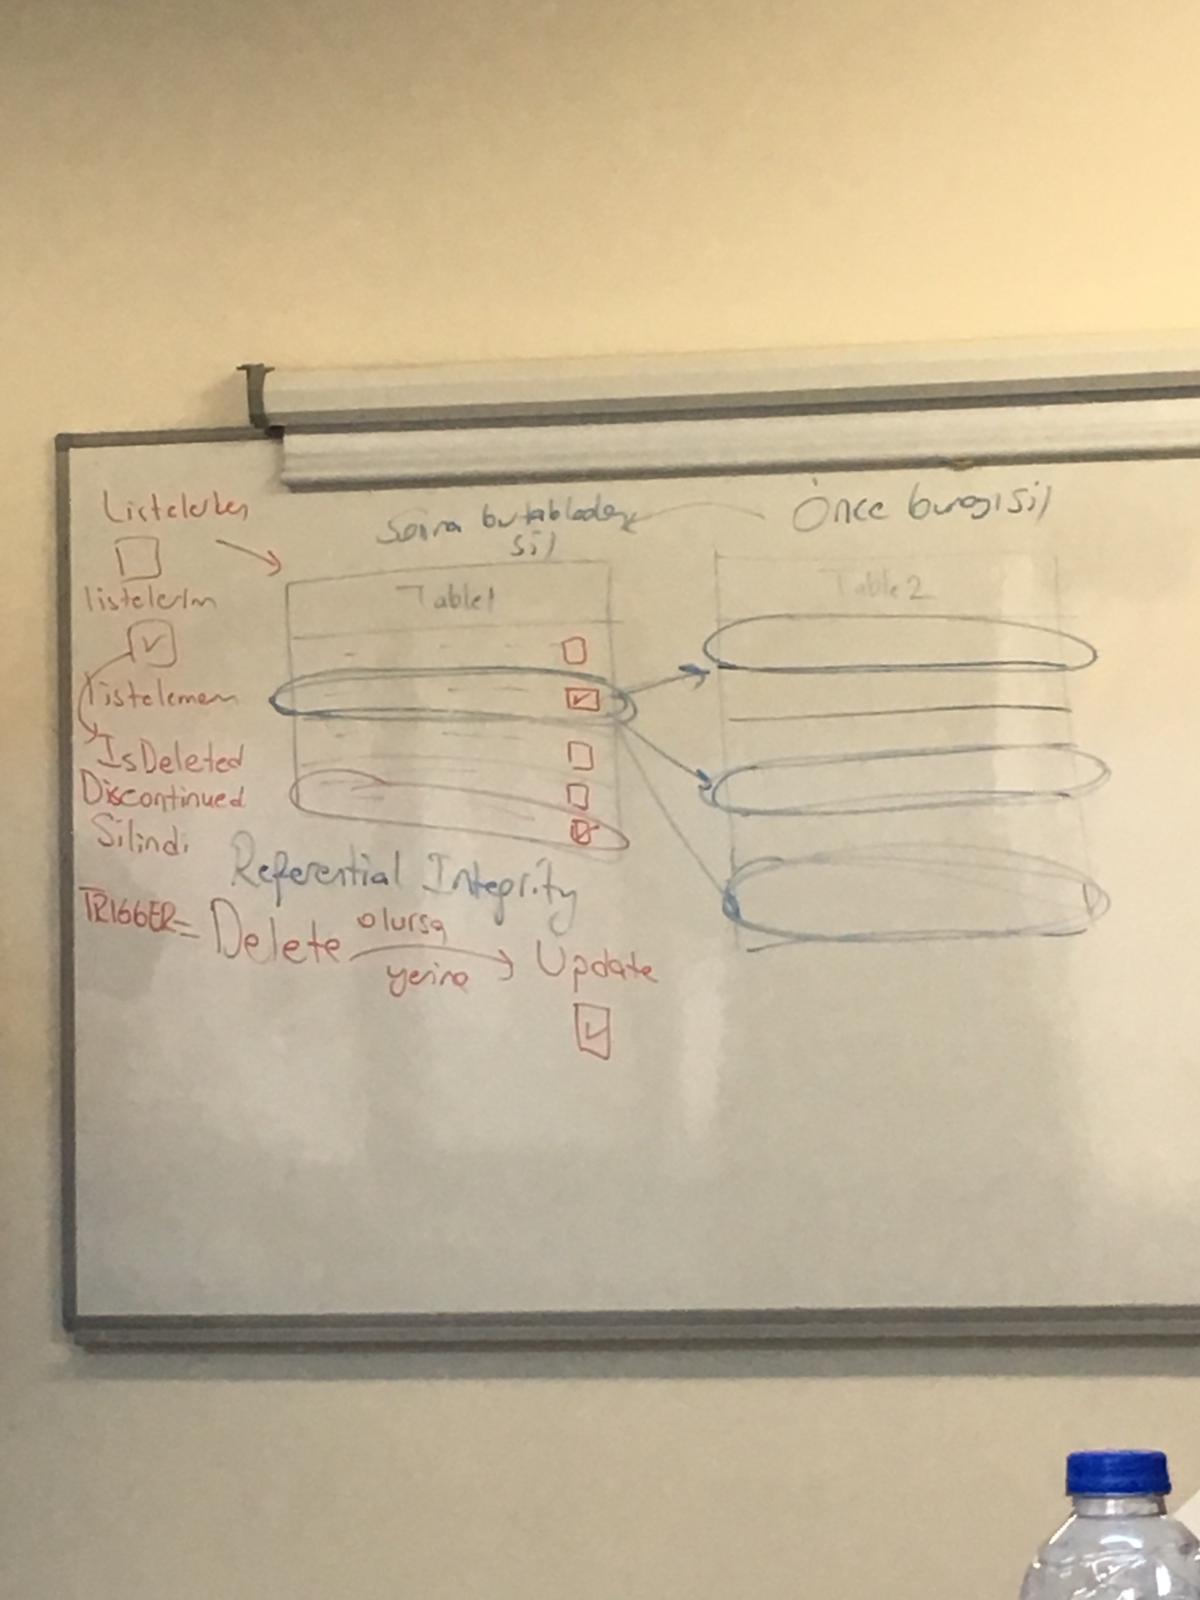 Listelerken
listelerim
listelemem
IsDeleted
Discontinued
Silindi
Sonra bu tablodan
sil
Önce burayı sil
Table1
Table 2
Referential Integrity
TRIGGER= Delete olursa
yerine Update